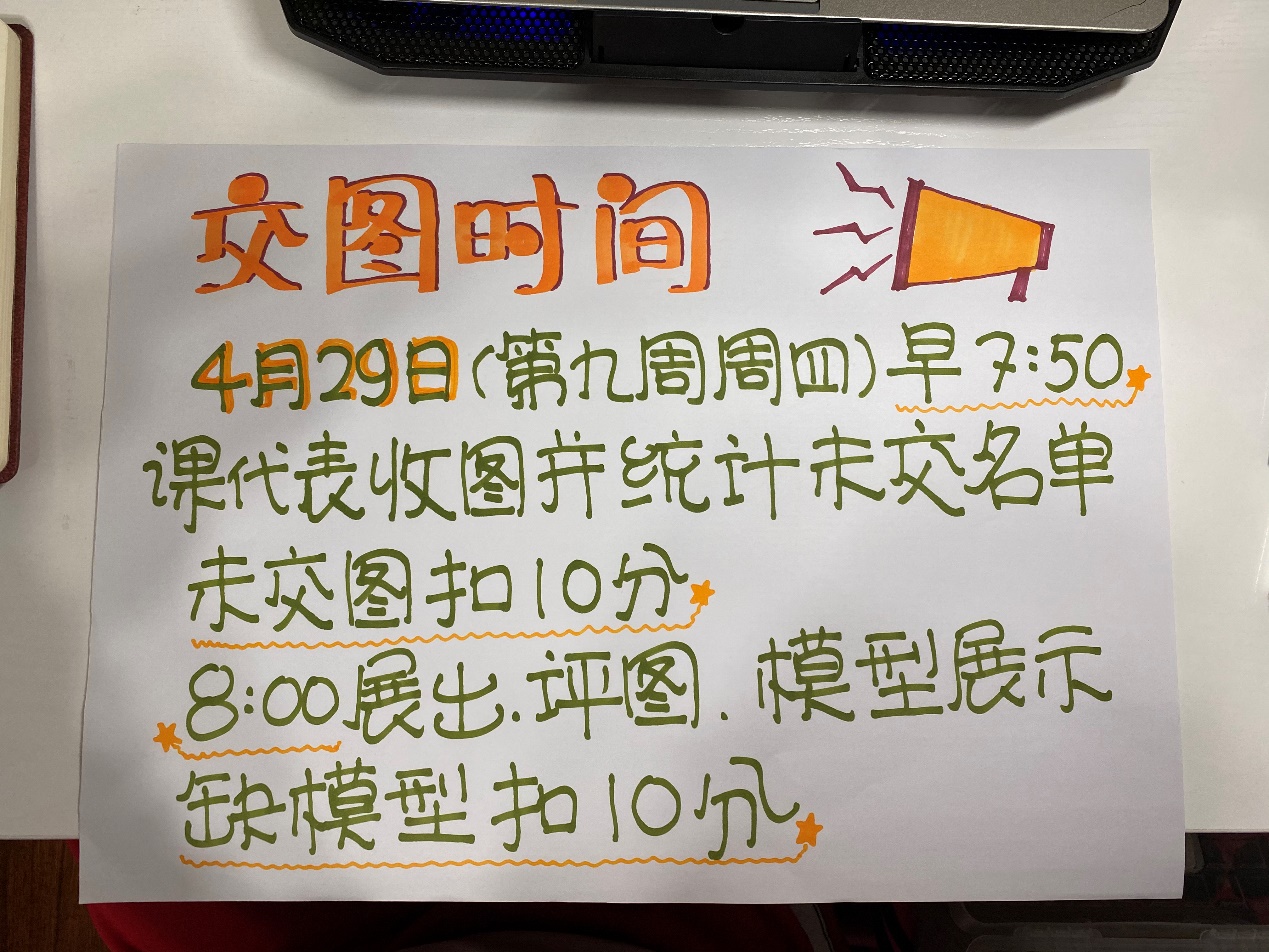 交图时间
4月29日(第九周周四)早7:50
课代表收图并统计未交名单
未交图扣10分
8:00展出.评图.模型展示
缺模型扣10分